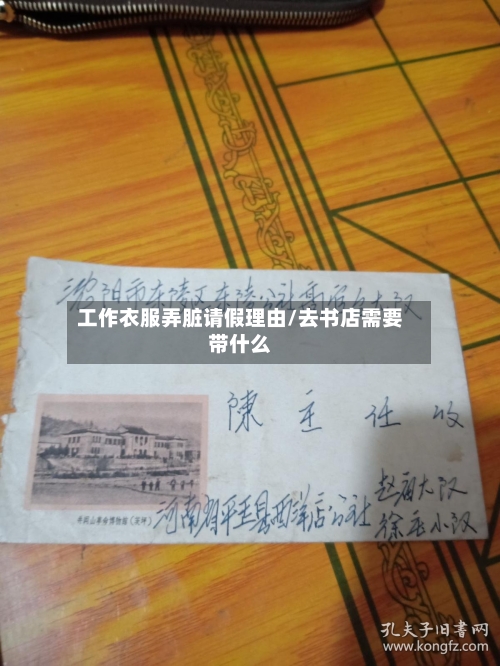 沈阳市东陵区东陵公社
工作衣服弄脏请假理由/去书店需要
带什么
陳主任收
井冈山革命博物馆(茨坪)
河南省平王县西洋店公社
赵庙大队
徐庄小队
孔夫子旧书网
www.kongfz.com